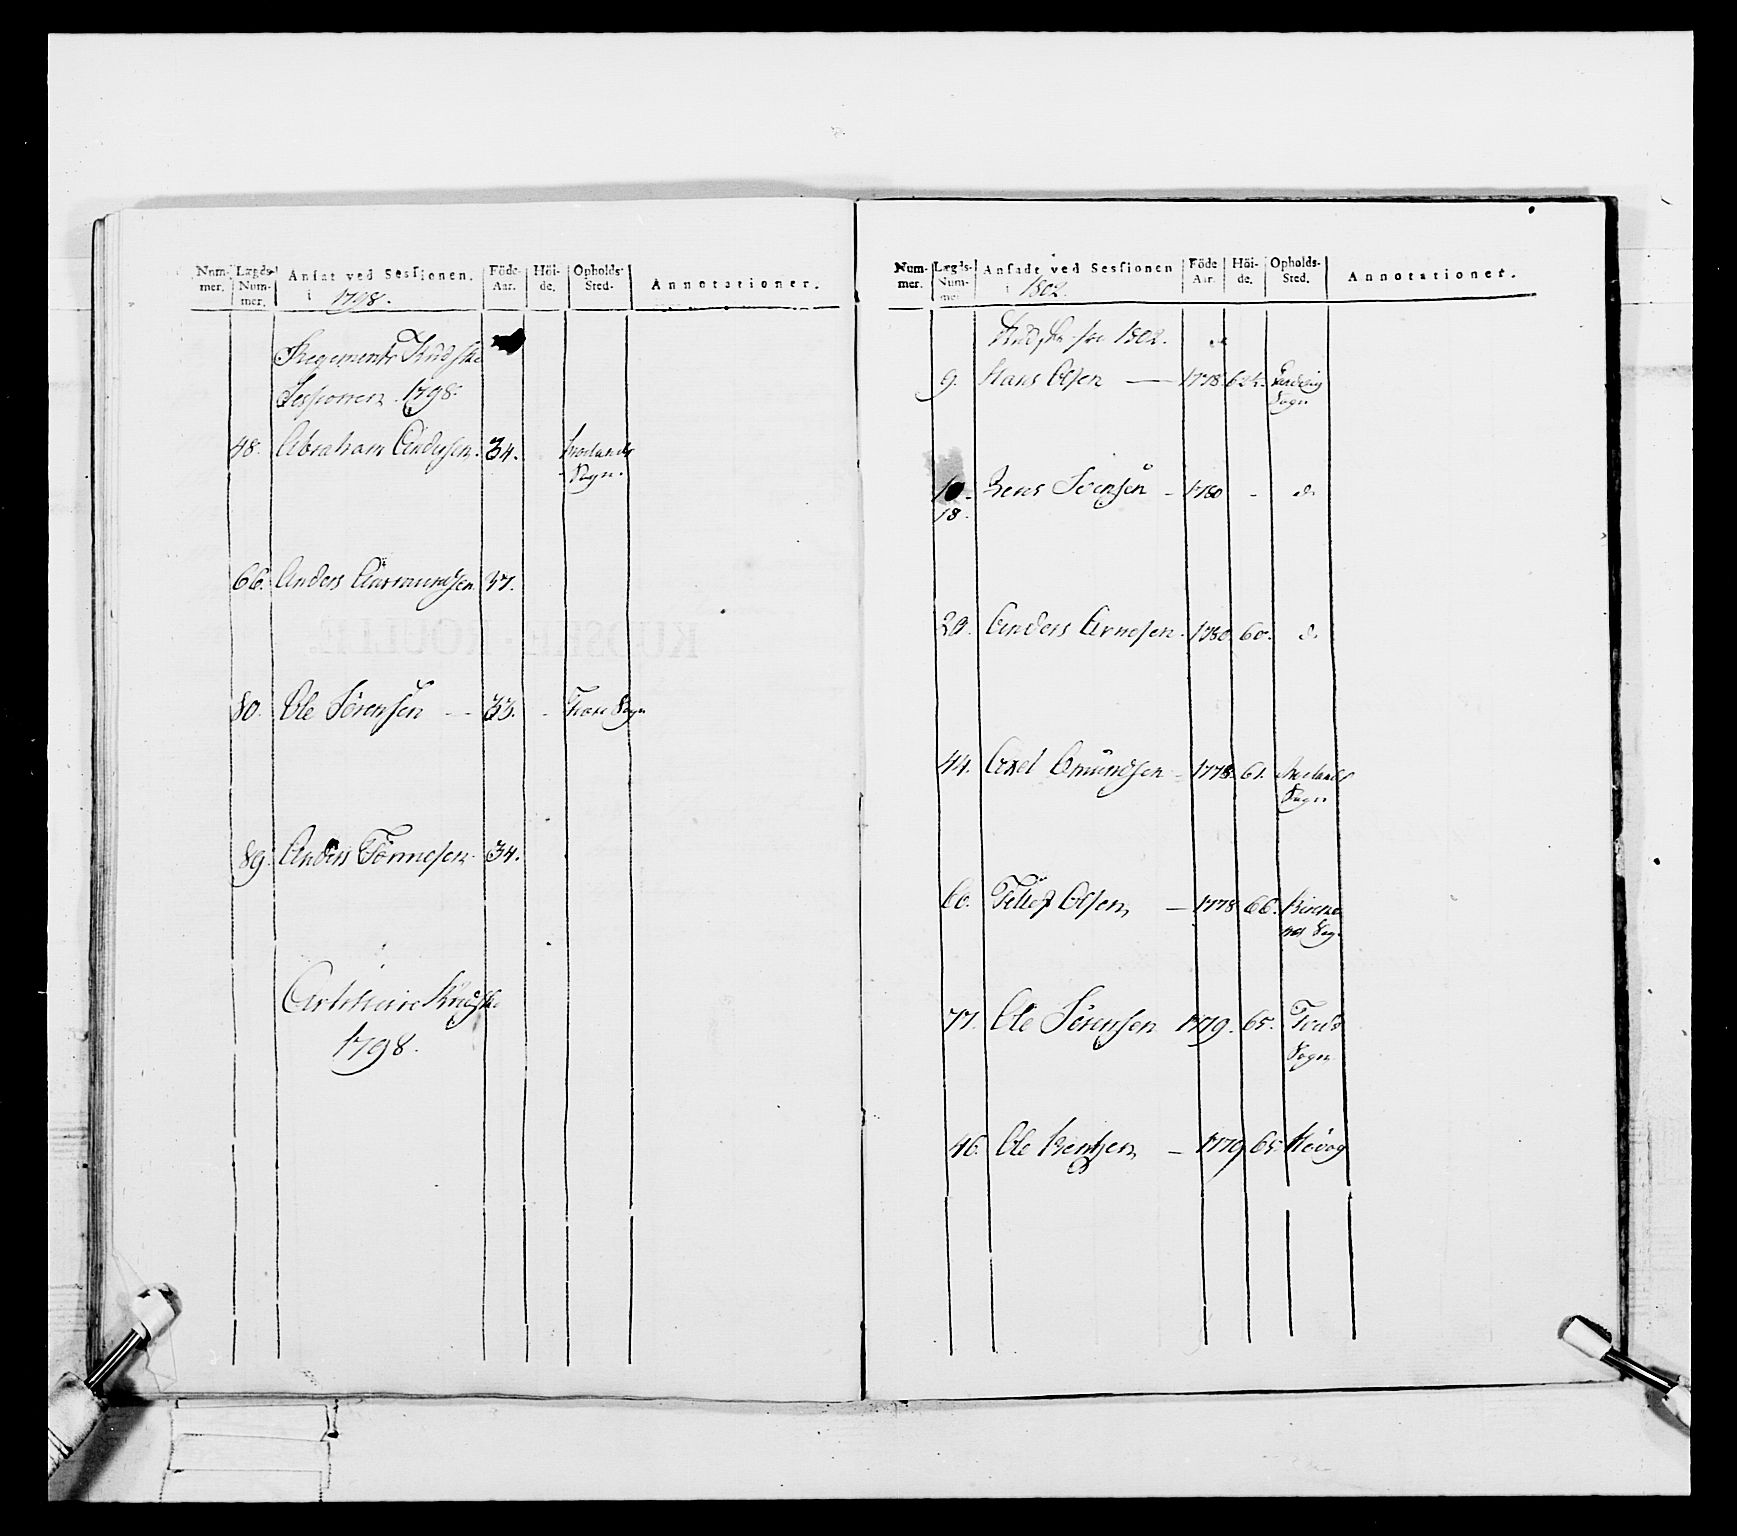 Num-mer. Lægds-Num-mer. Ansat ved Sessionen. i 1798. Föde-Aar. Höi-de. Opholds-Sted. Annotationer.
Regements Kudske
Sessionen 1798.
48. Abraham Andersen. 34.
Sogn.
66. Anders Aamundsen 37.
80. Ole Sörensen — 33. - Sogn
89. Anders Tönnesen 34.
Artillerie Kudske
1798.
Num-mer. Lægds-Num-mer. Ansadt ved Sessionen i 1802. Föde Aar. Höi-de. Opholds-Sted. Annotationer.
Kudske 1802.
9. Hans Olsen — 1778.
Sogn
10. Jens Svensen - 1780 - d.
18.
29. Anders Arnesen. 1780. 60. d.
44. Axel Amundsen - 1778. 61.
Sogn
60. Tellef Olsen, — 1778 66.
Sogn
77. Ole Sörensen 1779. 65.
Sogn
46. Ole Bentsen — 1779 65. Hövog